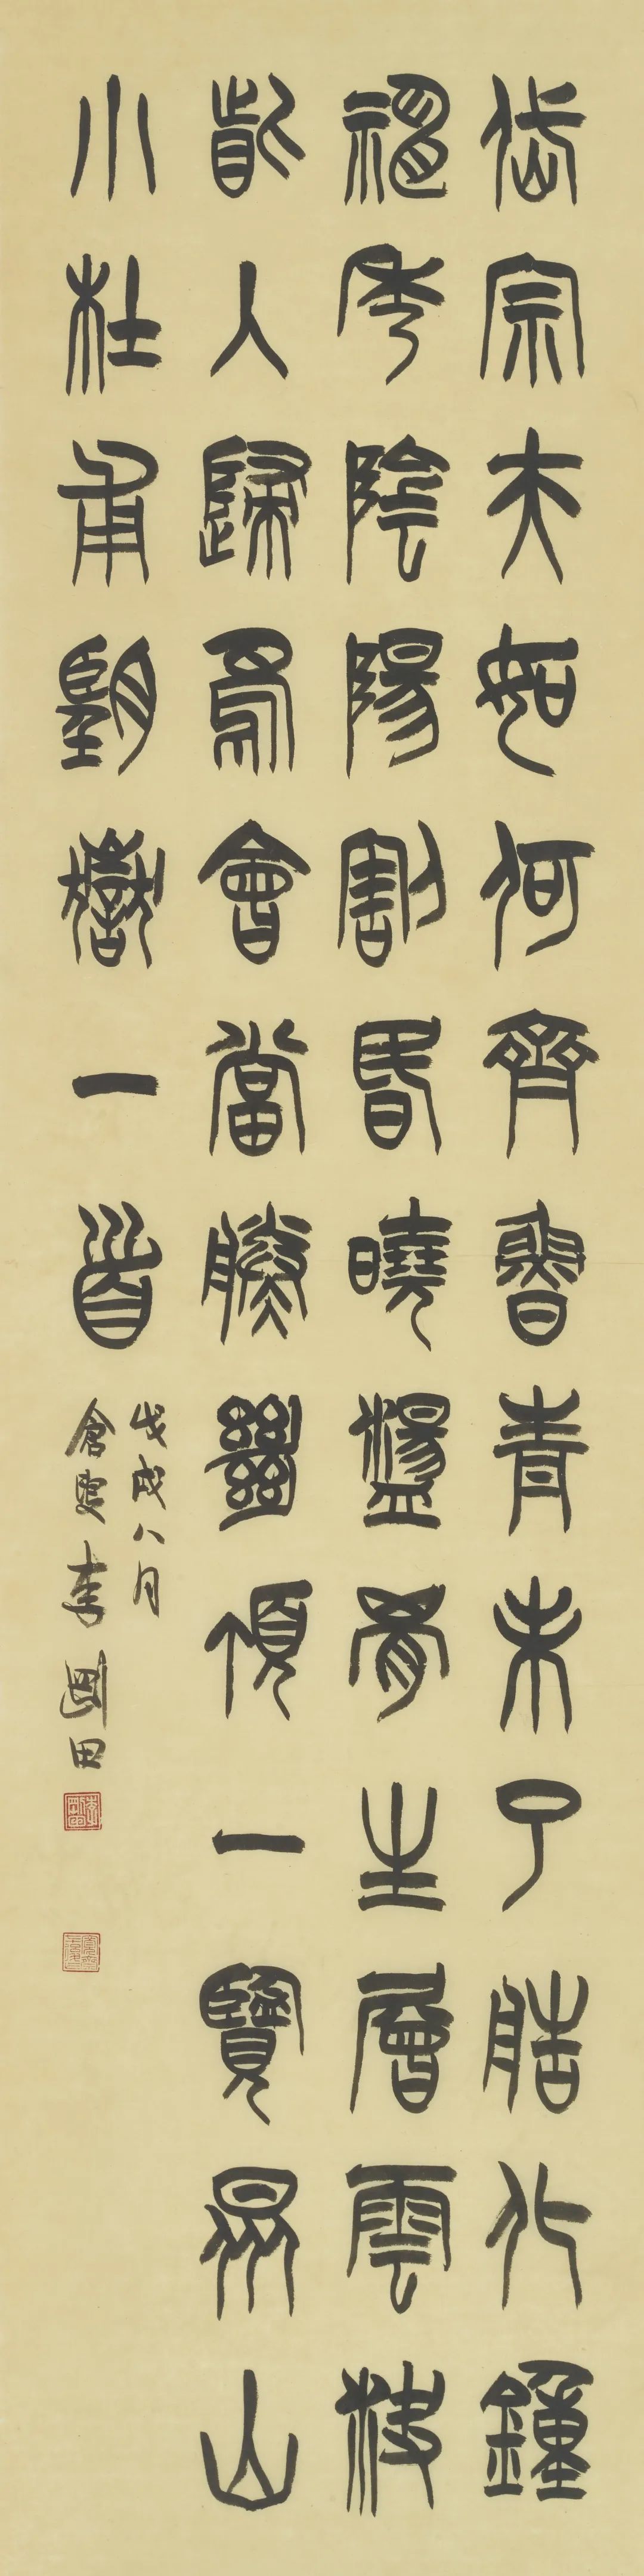 岱宗夫如何齊魯青未了造化鍾
神秀陰陽割昏曉盪胸生層雲決
眥入歸鳥會當凌絕頂一覽眾山
小杜甫望嶽一首
戊戌八月
倉叟李剛田